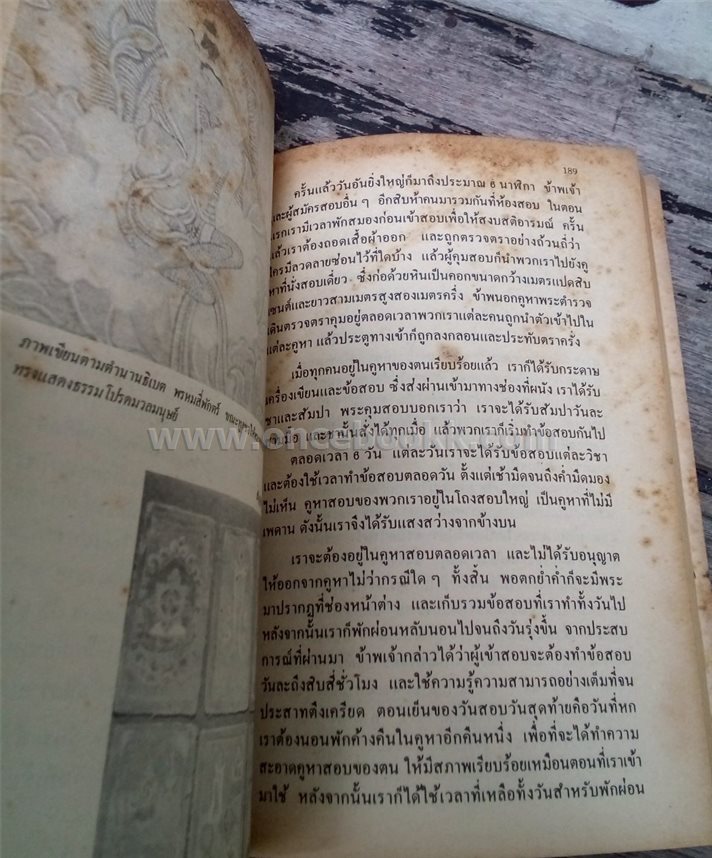 ภาพเขียนตามตำนานธิเบต พรหมสี่พักตร์
ทรงแสดงธรรมโปรดมวลมนุษย์
189
ครั้นแล้ววันอันยิ่งใหญ่ก็มาถึงประมาณ 6 นาฬิกา ข้าพเจ้า
และผู้สมัครสอบอื่น ๆ อีกสิบห้าคนมารวมกันที่ห้องสอบ ในตอน
แรกเรามีเวลาพักสมองก่อนเข้าสอบเพื่อให้สงบสติอารมณ์ ครั้น
แล้วเราต้องถอดเสื้อผ้าออก และถูกตรวจตราอย่างถ้วนถี่ว่า
ใครมีลวดลายซ่อนไว้ที่ใดบ้าง แล้วผู้คุมสอบก็นำพวกเราไปยังคู
หาที่นั่งสอบเดี่ยว ซึ่งก่อด้วยหินเป็นคอกขนาดกว้างเมตรแปดสิบ
เซนต์และยาวสามเมตรสูงสองเมตรครึ่ง ข้างนอกคูหาพระตำรวจ
เดินตรวจตราคุมอยู่ตลอดเวลาพวกเราแต่ละคนถูกนำตัวเข้าไปใน
แต่ละคูหา แล้วประตูทางเข้าก็ถูกลงกลอนและประทับตราครั่ง
เมื่อทุกคนอยู่ในคูหาของตนเรียบร้อยแล้ว เราก็ได้รับกระดาษ
เครื่องเขียนและข้อสอบ ซึ่งส่งผ่านเข้ามาทางช่องที่ผนัง เราได้รับ
ชาและสัมปา พระคุมสอบบอกเราว่า เราจะได้รับสัมปาวันละ
มื้อ และชานั้นสั่งได้ทุกเมื่อ แล้วพวกเราก็เริ่มทำข้อสอบกันไป
ตลอดเวลา 6 วัน แต่ละวันเราจะได้รับข้อสอบแต่ละวิชา
และต้องใช้เวลาทำข้อสอบตลอดวัน ตั้งแต่เช้ามืดจนถึงค่ำมืดมอง
ไม่เห็น คูหาสอบของพวกเราอยู่ในโถงสอบใหญ่ เป็นคูหาที่ไม่มี
เพดาน ดังนั้นเราจึงได้รับแสงสว่างจากข้างบน
เราจะต้องอยู่ในคูหาสอบตลอดเวลา และไม่ได้รับอนุญาต
ให้ออกจากคูหาไม่ว่ากรณีใด ๆ ทั้งสิ้น พอตกย่ำค่ำก็จะมีพระ
มาปรากฏที่ช่องหน้าต่าง และเก็บรวมข้อสอบที่เราทำทั้งวันไป
หลังจากนั้นเราก็พักผ่อนหลับนอนไปจนถึงวันรุ่งขึ้น จากประสบ
การณ์ที่ผ่านมา ข้าพเจ้ากล่าวได้ว่าผู้เข้าสอบจะต้องทำข้อสอบ
วันละถึงสิบสี่ชั่วโมง และใช้ความรู้ความสามารถอย่างเต็มที่จน
ประสาทตึงเครียด ตอนเย็นของวันสอบวันสุดท้ายคือวันที่หก
เราต้องนอนพักค้างคืนในคูหาอีกคืนหนึ่ง เพื่อที่จะได้ทำความ
สะอาดคูหาสอบของตน ให้มีสภาพเรียบร้อยเหมือนตอนที่เราเข้า
มาใช้ หลังจากนั้นเราก็ได้ใช้เวลาที่เหลือทั้งวันสำหรับพักผ่อน